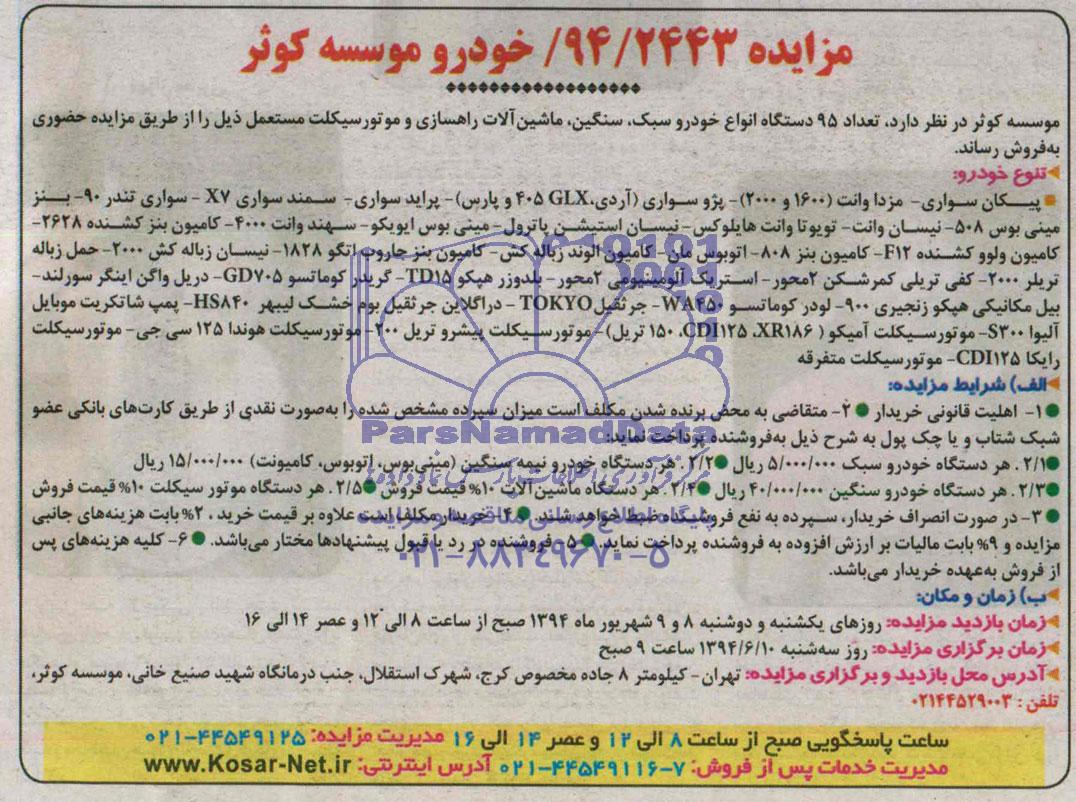 مزایده ۹۴/۲۴۴۳/ خودرو موسسه کوثر
موسسه کوثر در نظر دارد، تعداد ۹۵ دستگاه انواع خودرو سبک، سنگین، ماشین‌آلات راهسازی و موتورسیکلت مستعمل ذیل را از طریق مزایده حضوری
به‌فروش رساند.
تنوع خودرو:
پیـکان سـواری- مزدا وانت (۱۶۰۰ و ۲۰۰۰)- پژو سـواری (آردی، ۴۰۵ GLX و پارس)- پراید سواری- سـمند سواری X۷ - سواری تندر ۹۰- بـنز
مینی بوس ۵۰۸- نیسان وانت- تویوتا وانت هایلوکس- نیسان استیشن پاترول- مینی بوس ایویکو- سـهند وانت ۴۰۰۰- کامیون بنز کشنده ۲۶۲۸-
کامیون ولوو کشـنده F۱۲- کامیون بنز ۸۰۸- اتوبوس مان- کامیون الوند زباله کش- کامیون بنز جاروب اتگو ۱۸۲۸- نیسـان زباله کش ۲۰۰۰- حمل زباله
تریلر ۲۰۰۰- کفی تریلی کمرشـکن ۲محور- استریک آلومینیومی ۲محور- بلدوزر هپکو TD۱۵- گریدر کوماتسو GD۷۰۵- دریل واگن اینگر سورلند-
بیل مکانیکی هپکو زنجیری ۹۰۰- لودر کوماتسـو WA۴۵۰- جرثقیل TOKYO - دراگلاین جرثقیل بوم خشـک لیبهر HS۸۴۰- پمپ شاتکریت موبایل
آلیوا S۳۰۰- موتورسـیکلت آمیکو ( CDI۱۲۵ ،XR۱۸۶، ۱۵۰ تریل)- موتورسـیکلت پیشرو تریل ۲۰۰- موتورسیکلت هوندا ۱۲۵ سی جی- موتورسیکلت
رایکا CDI۱۲۵- موتورسیکلت متفرقه
الف) شرایط مزایده:
۱- اهلیت قانونی خریدار ۲- متقاضی به محض برنده شدن مکلف است میزان سپرده مشخص شده را به‌صورت نقدی از طریق کارت‌های بانکی عضو
شبک شتاب و یا چک پول به شرح ذیل به‌فروشنده پرداخت نماید:
۲/۱. هر دستگاه خودرو سبک ۵/۰۰۰/۰۰۰ ریال ۲/۲. هر دستگاه خودرو نیمه سنگین (مینی‌بوس، اتوبوس، کامیونت) ۱۵/۰۰۰/۰۰۰ ریال
۲/۳. هر دستگاه خودرو سنگین ۴۰/۰۰۰/۰۰۰ ریال ۲/۴. هر دستگاه ماشین‌آلات ۱۰% قیمت فروش ۲/۵. هر دستگاه موتور سیکلت ۱۰% قیمت فروش
۳- در صورت انصراف خریدار، سـپرده به نفع فروشنده ضبط خواهد شـد. ۴- خریدار مکلف است علاوه بر قیمت خرید ، ۲% بابت هزینه‌های جانبی
مزایده و ۹% بابت مالیات بر ارزش افزوده به فروشنده پرداخت نماید. ۵- فروشنده در رد یا قبول پیشنهادها مختار می‌باشد. ۶- کلیه هزینه‌های پس
از فروش به‌عهده خریدار می‌باشد.
ب) زمان و مکان:
زمان بازدید مزایده: روزهای یکشنبه و دوشنبه ۸ و ۹ شهریور ماه ۱۳۹۴ صبح از ساعت ۸ الی ۱۲ و عصر ۱۴ الی ۱۶
زمان برگزاری مزایده: روز سه‌شنبه ۱۳۹۴/۶/۱۰ ساعت ۹ صبح
آدرس محل بازدید و برگزاری مزایده: تهران- کیلومتر ۸ جاده مخصوص کرج، شهرک استقلال، جنب درمانگاه شهید صنیع خانی، موسسه کوثر،
تلفن : ۰۲۱۴۴۵۲۹۰۰۳
ساعت پاسخگویی صبح از ساعت ۸ الی ۱۲ و عصر ۱۴ الی ۱۶ مدیریت مزایده: ۰۲۱-۴۴۵۴۹۱۲۵
مدیریت خدمات پس از فروش: ۷-۰۲۱-۴۴۵۴۹۱۱۶ آدرس اینترنتی: www.Kosar-Net.ir
ParsNamadData
پایگاه اطلاع رسانی مناقصه و مزایده
۰۲۱-۸۸۳۴۹۶۷۰-۵